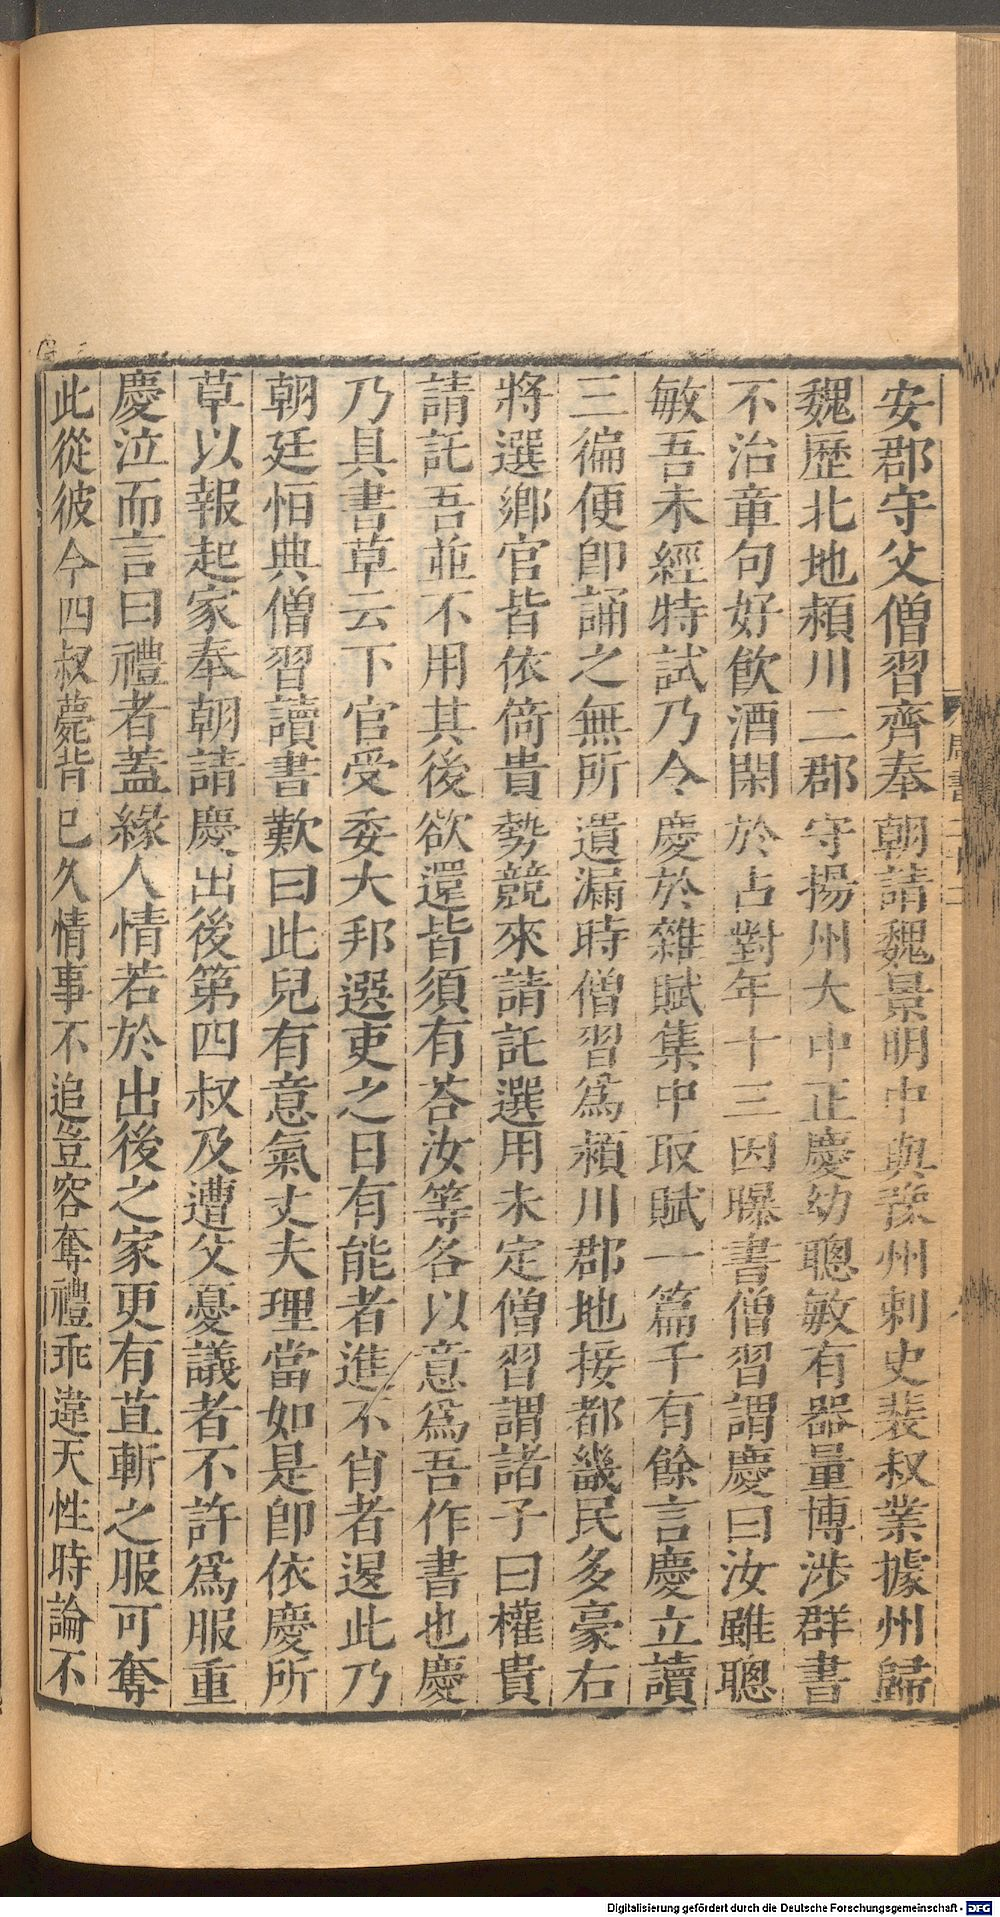 安郡守父僧習齊奉朝請魏景明中與豫州刺史裴叔業據州歸
魏歷北地頴川二郡守揚州大中正慶幼聰敏有器量博涉群書
不治章句好飲酒閑於占對年十三因曝書僧習謂慶曰汝雖聰
敏吾未經特試乃令慶於雜賦集中取賦一篇千有餘言慶立讀
三徧便卽誦之無所遺漏時僧習爲頴川郡地接都畿民多豪右
將選鄉官皆依倚貴勢競來請託選用未定僧習謂諸子曰權貴
請託吾並不用其後欲還皆須有荅汝等各以意爲吾作書也慶
乃具書草云下官受委大邦選吏之日有能者進不肖者退此乃
朝廷恒典僧習讀書歎曰此兒有意氣丈夫理當如是卽依慶所
草以報起家奉朝請慶出後第四叔及遭父憂議者不許爲服重
慶泣而言曰禮者蓋緣人情若於出後之家更有苴斬之服可奪
此從彼今四叔薨背已久情事不追豈容奪禮乖違天性時論不
周書二十二
Digitalisierung gefördert durch die Deutsche Forschungsgemeinschaft - DFG